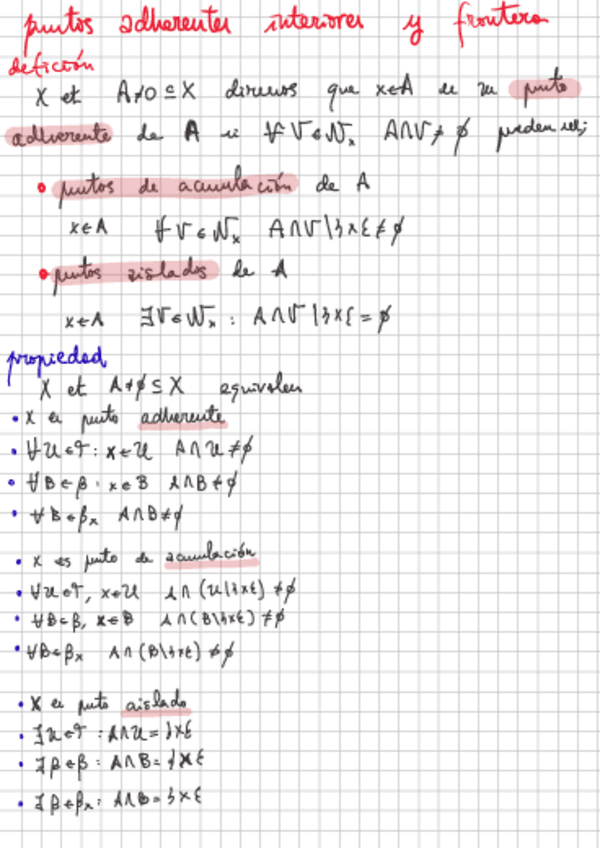 puntos adherentes interiores y frontera
defición
X et A≠∅ ⊆ X diremos que x∈A es un punto
adherente de A si ∀V∈𝒩ₓ A∩V≠∅ pueden ser;
• puntos de acumulación de A
x∈A ∀V∈𝒩ₓ A∩V\{x}≠∅
• puntos aislados de A
x∈A ∃V∈𝒩ₓ : A∩V\{x}=∅
propiedad
X et A≠∅ ⊆ X equivalen
• x es punto adherente
• ∀U∈τ : x∈U A∩U≠∅
• ∀B∈β : x∈B A∩B≠∅
• ∀B∈βₓ A∩B≠∅
• x es punto de acumulación
• ∀U∈τ, x∈U A∩(U\{x})≠∅
• ∀B∈β, x∈B A∩(B\{x})≠∅
• ∀B∈βₓ A∩(B\{x})≠∅
• x es punto aislado
• ∃U∈τ : A∩U={x}
• ∃β∈β : A∩B={x}
• ∃β∈βₓ : A∩B={x}